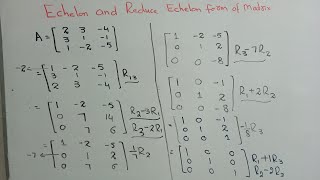 Echelon and Reduce Echelon form of Matrix
A = [2 3 -4
3 1 -1
1 -2 -5]
= [1 -2 -5
3 1 -1
2 3 -4] R13
= [1 -2 -5
0 7 14
0 7 6] R2-3R1
R3-2R1
= [1 -2 -5
0 1 2
0 7 6] 1/7 R2
[1 -2 -5
0 1 2
0 0 -8] R3-7R2
[1 0 -1
0 1 2
0 0 -8] R1+2R2
= [1 0 -1
0 1 2
0 0 1] -1/8 R3
= [1 0 0
0 1 0
0 0 1] R1+1R3
R2-2R3